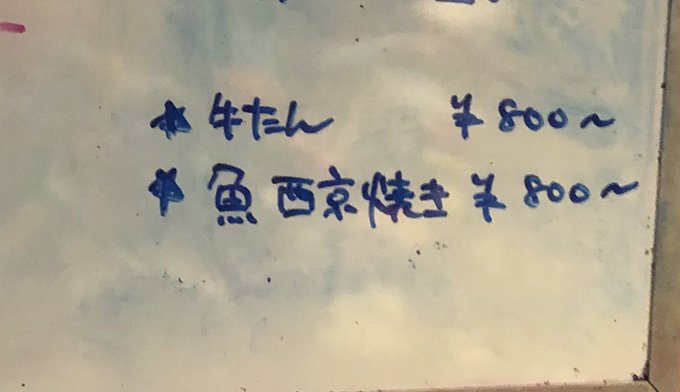 ★ 牛たん ¥800〜
★ 魚 西京焼き ¥800〜